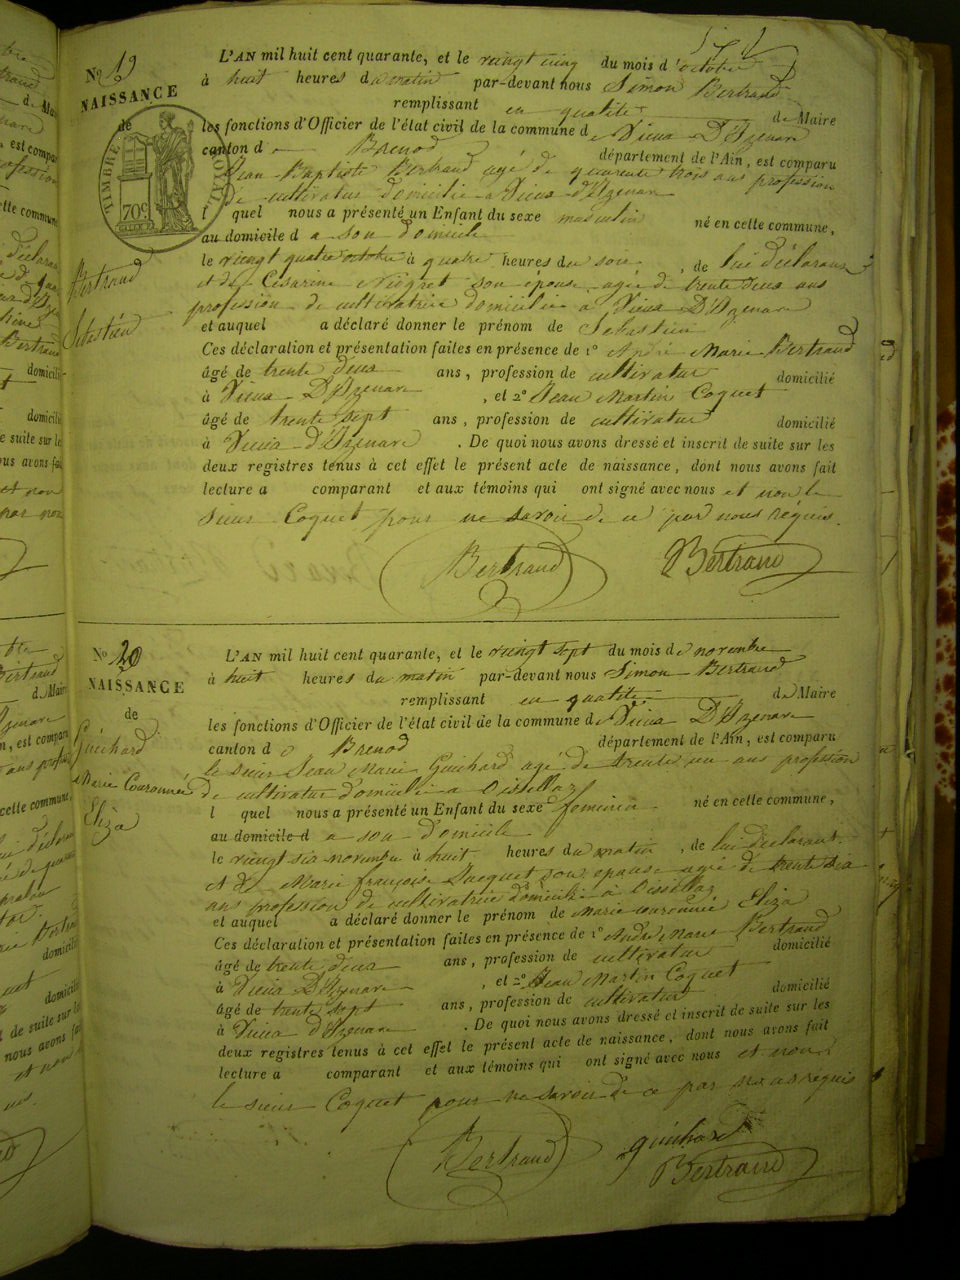 N.º 19
NAISSANCE
de
Bertrand
Sébastién
TIMBRE ROYAL
70c
L'AN mil huit cent quarante, et le veingt cinq du mois d'octobre
à huit heures du matin par-devant nous Simon Bertrand
remplissant en qualité de Maire
les fonctions d'Officier de l'état civil de la commune de Vieux D'Izenave
canton de Brenod département de l'Ain, est comparu
Jean Baptiste Bertrand agé de quarente trois ans profession
de cultivatur domicilié à Vieux d'Izenave
l quel nous a présenté un Enfant du sexe masculin né en cette commune,
au domicile d a son domicile
le veingt quatre octobre à quatre heures du soir, de lui déclarant
et de Césarine Niogret son épouse agée de trente deux ans
profession de cultivatrice domiciliée à Vieux D'Izenave
et auquel a déclaré donner le prénom de Sebastien
Ces déclaration et présentation faites en présence de 1º André Marie Bertrand
âgé de trente deux ans, profession de cultivatur domicilié
à Vieux D'Izenave, et 2º Jean Martin Coquet
âgé de trente sept ans, profession de cultivatur domicilié
à Vieux d'Izenave. De quoi nous avons dressé et inscrit de suite sur les
deux registres tenus à cet effet le présent acte de naissance, dont nous avons fait
lecture a comparant et aux témoins qui ont signé avec nous et non le
Sieur Coquet pour ne savoir de ce par nous réquis.
Bertrand Bertrand
N.º 20
NAISSANCE
de
Guichard
Marie Couronnée
Eliza
L'AN mil huit cent quarante, et le veingt sept du mois de novembre
à huit heures du matin par-devant nous Simon Bertrand
remplissant en qualité de Maire
les fonctions d'Officier de l'état civil de la commune de Vieux D'Izenave
canton d Brenod département de l'Ain, est comparu
le sieur Jean Marie Guichard agé de trente un ans profession
de cultivatur domicilié a Oissellaz
l quel nous a présenté un Enfant du sexe feminin né en cette commune,
au domicile d a son domicile
le veingt six novembre à huit heures du matin, de lui declarant
et de Marie françoise Jacquet son epouse agé de trente six
ans profession de cultivatrice domicilié à Oissellaz
et auquel a déclaré donner le prénom de Marie couronnée Eliza
Ces déclaration et présentation faites en présence de 1º André Marie Bertrand
âgé de trente deux ans, profession de cultivatur domicilié
à Vieux D'Izenave, et 2º Jean Martin Coquet
âgé de trente sept ans, profession de cultivatur domicilié
à Vieux d'Izenave. De quoi nous avons dressé et inscrit de suite sur les
deux registres tenus à cet effet le présent acte de naissance, dont nous avons fait
lecture a comparant et aux témoins qui ont signé avec nous et non
le sieur Coquet pour ne savoir de ce par nous requis
Bertrand guichard
Bertrand